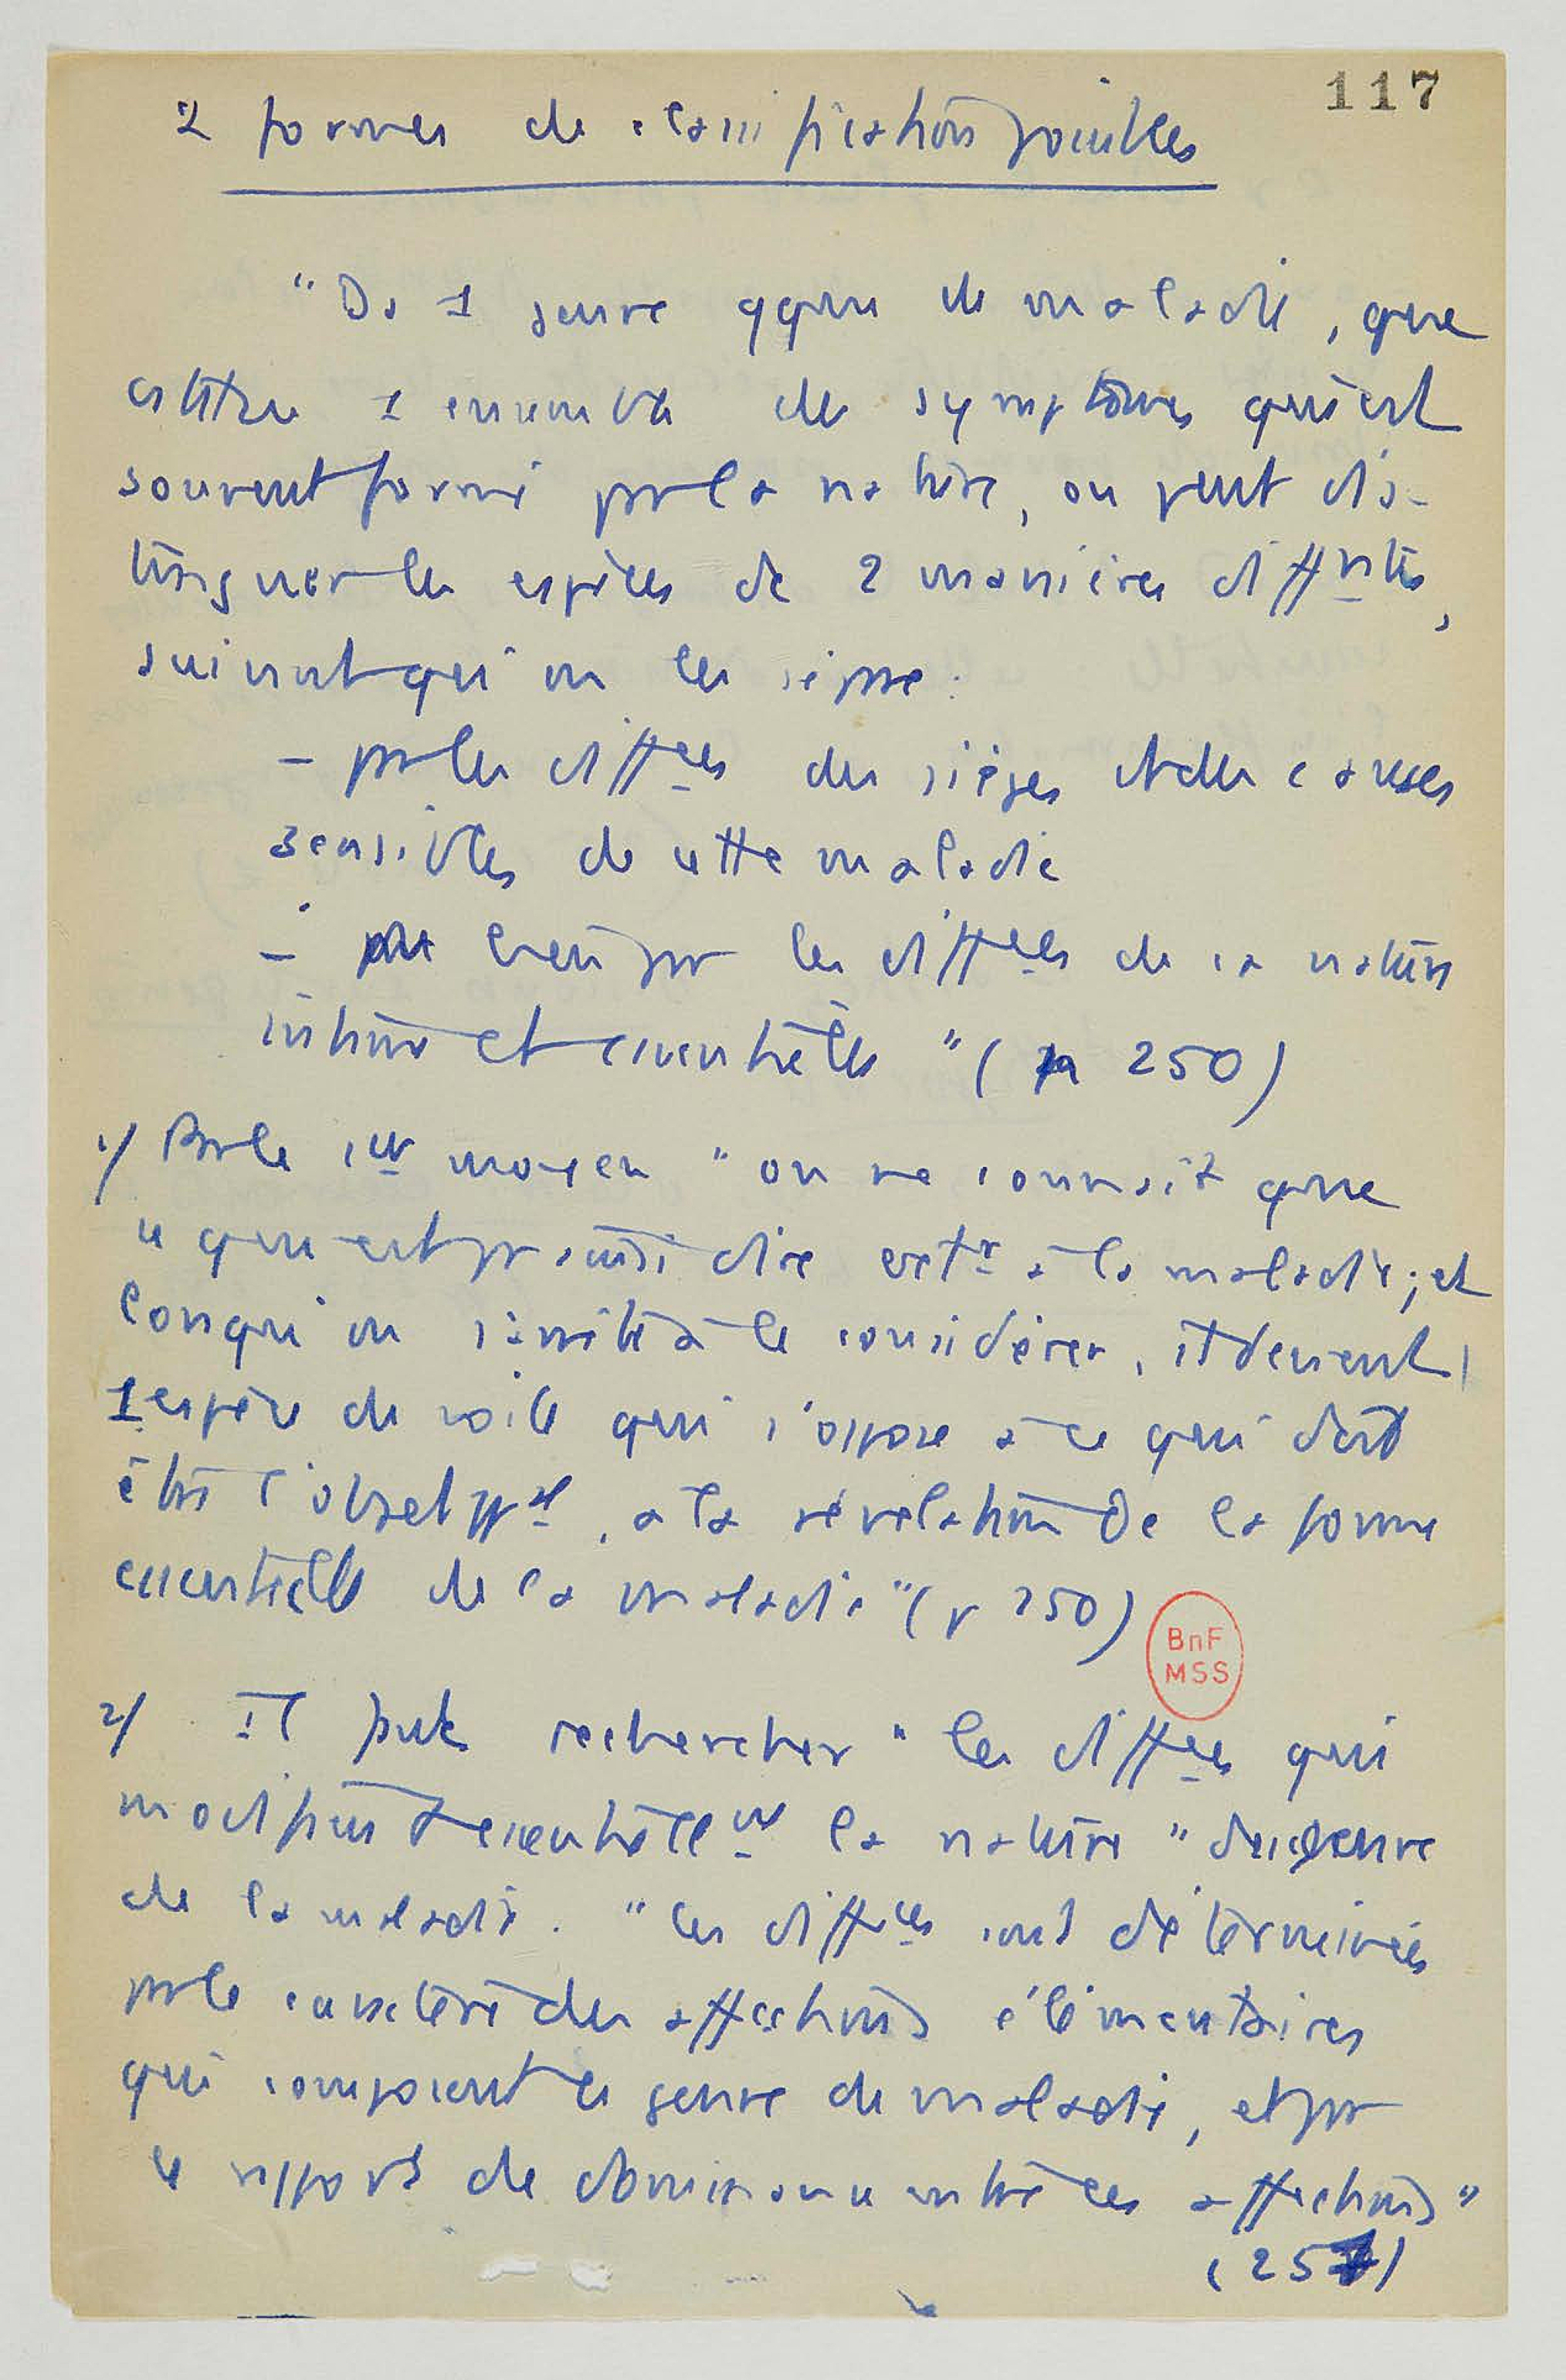 117
2 formes de classification possibles
"Ds 1 genre qqnq de maladie, que
constitue 1 ensemble de symptômes qui est
souvent formé par la nature, on peut dis-
tinguer les espèces de 2 manières diff<u>ntes</u>,
suivant qu'on les sépare :
– par les diff<u>ces</u> des sièges et des causes
sensibles de cette maladie
– ou bien par les diff<u>ces</u> de sa nature
intime et essentielle" (p 250)
1/ Par le 1<u>er</u> moyen "on ne connaît que
ce qui est pr ainsi dire ext<u>r</u> à la maladie; et
lorsqu'on s'arrête à le considérer, it devient
1 espèce de voile qui s'oppose à ce qui doit
être l'objet pp<u>al</u>, à la révélation de la forme
essentielle de la maladie" (p 250)
BnF
MSS
2/ Il faut rechercher "les diff<u>ces</u> qui
modifient essentiellem<u>t</u> la nature" du genre
de la maladie. "Ces diff<u>ces</u> sont déterminées
par le caractère des affections élémentaires
qui composent le genre de maladie, et par
le rapport de dominance entre ces affections"
(251)